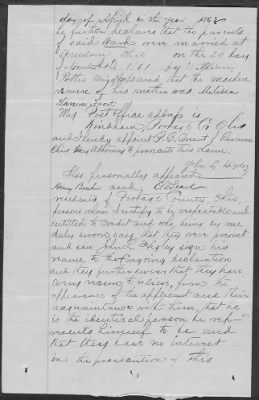 day of April in the year 1862
he further declares that the parents
of said Ward were married at
Freedom Ohio on the 20 day
of by William
Potter and that the maiden
name of his mother was Melissa
Frost
My Post Office address is
Windham Portage Co Ohio
and I hereby appoint
Ohio my Attorney to prosecute this claim
John L
Also personally appeared
and
residents of Portage County, Ohio,
persons whom I certify to be respectable and
entitled to credit and who, being by me
duly sworn, say that they were present
and saw John sign his
name to the foregoing declaration
and they further swear that they have
every reason to believe, from the
appearance of the applicant and their
acquaintance with him, that he
is the identical person he rep-
resents himself to be and
that they have no interest
in the prosecution of this